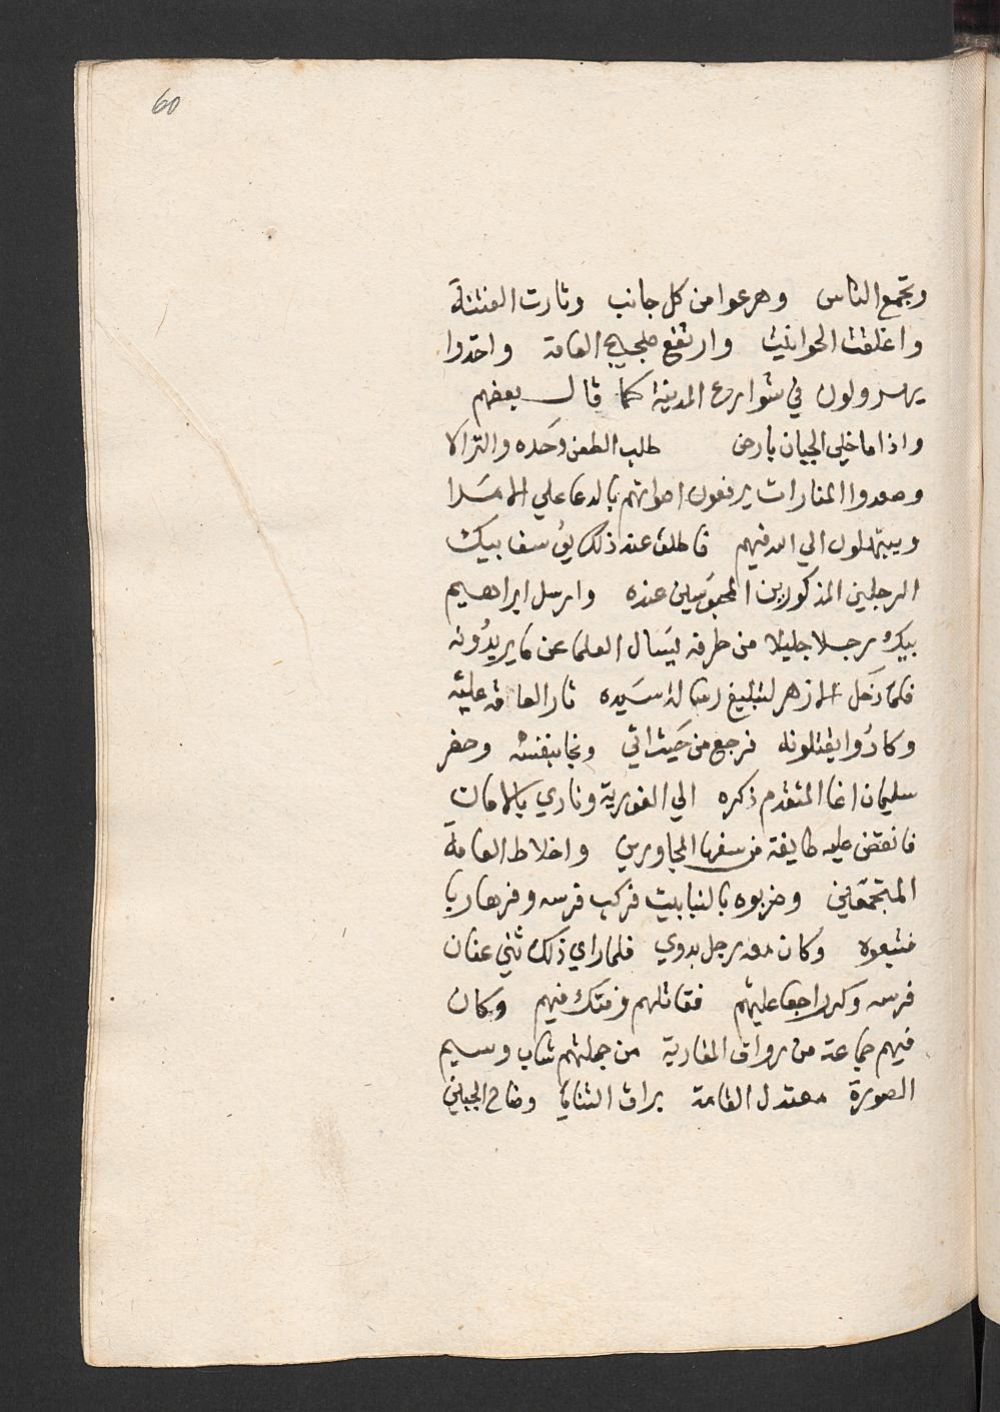 60
وتجمع الناس وهرعوا من كل جانب وثارت الفتنة
واغلقت الحوانيت وارتفع ضجيج العامة واخذوا
يهرولون في شوارع المدينة كما قال بعضهم
واذا ما خلي الجبان بارض طلب الطعن وحده والنزالا
وصعدوا المنارات يرفعون اصواتهم بالدعا علي الامرا
ويبتهلون الي الله فيهم فاطلق عند ذلك يوسف بيك
الرجلين المذكورين المحبوسين عنده وارسل ابراهيم
بيك رجلا جليلا من طرفه ليسال العلما عن ما يريدونه
فلما دخل الازهر لتبليغ رسالة سيده ثار العامة عليه
وكادوا يقتلونه فرجع من حيث اتي ونجا بنفسه وحضر
سليمان اغا المتقدم ذكره الي الغورية ونادي بالامان
فانقض عليه طايفة من سفها المجاورين واخلاط العامة
المتجمعين وضربوه بالنبابيت فركب فرسه وفر هاربا
فتبعوه وكان معه رجل بدوي فلما راي ذلك ثني عنان
فرسه وكر راجعا عليهم فقاتلهم وفتك فيهم وكان
فيهم جماعة من رواق المغاربة من جملتهم شاب وسيم
الصورة معتدل القامة براق الثنايا وضاح الجبين